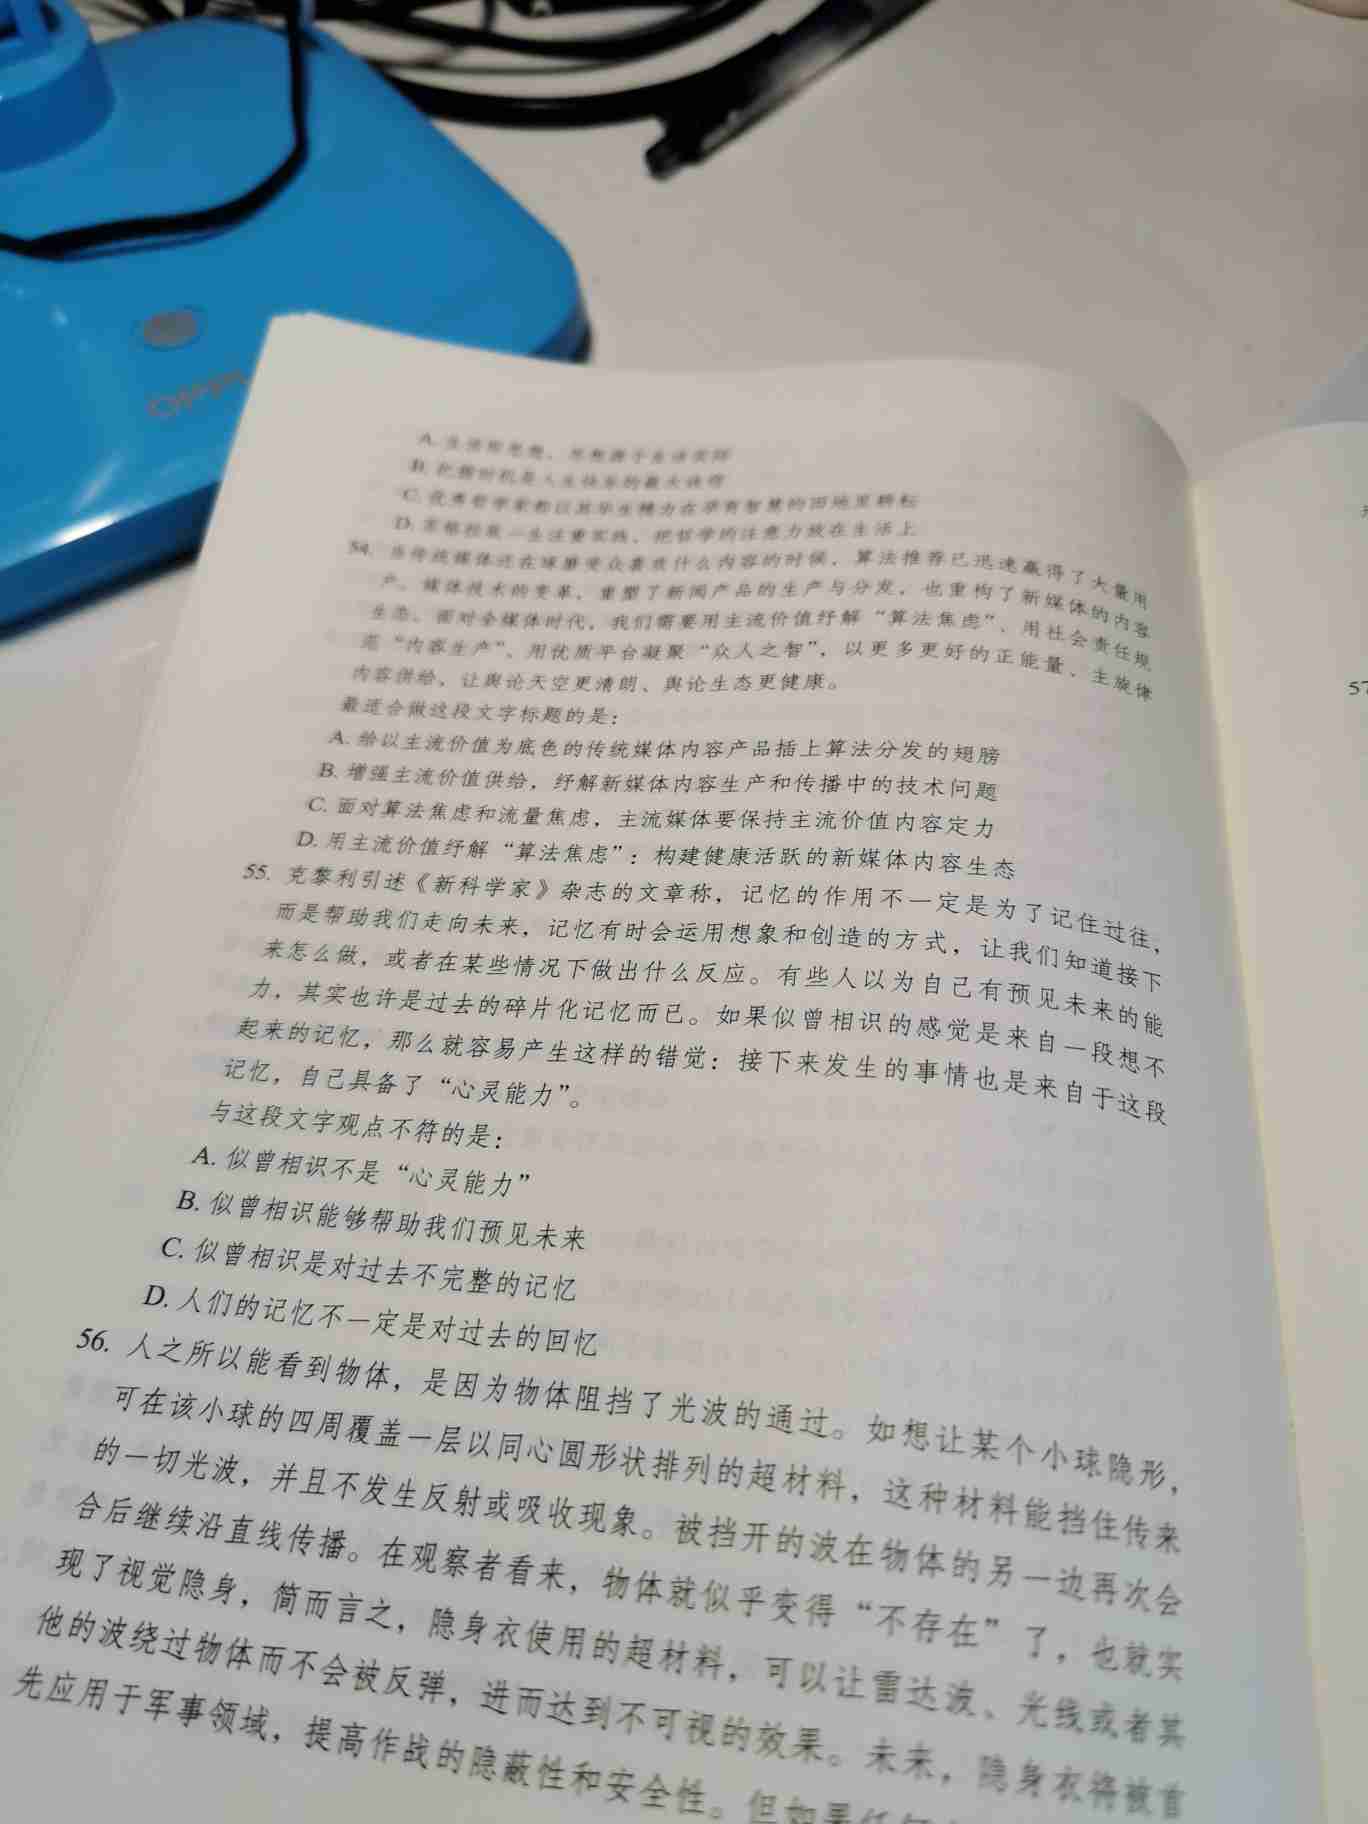 OPPL
D. 苏格拉底一生注重实践，把哲学的注意力放在生活上
54. 当传统媒体还在琢磨受众喜欢什么内容的时候，算法推荐已迅速赢得了大量用
户。媒体技术的变革，重塑了新闻产品的生产与分发，也重构了新媒体的内容
生态。面对全媒体时代，我们需要用主流价值纾解“算法焦虑”、用社会责任规
范“内容生产”、用优质平台凝聚“众人之智”，以更多更好的正能量、主旋律
内容供给，让舆论天空更清朗、舆论生态更健康。
最适合做这段文字标题的是：
A. 给以主流价值为底色的传统媒体内容产品插上算法分发的翅膀
B. 增强主流价值供给，纾解新媒体内容生产和传播中的技术问题
C. 面对算法焦虑和流量焦虑，主流媒体要保持主流价值内容定力
D. 用主流价值纾解“算法焦虑”：构建健康活跃的新媒体内容生态
55. 克黎利引述《新科学家》杂志的文章称，记忆的作用不一定是为了记住过往，
而是帮助我们走向未来，记忆有时会运用想象和创造的方式，让我们知道接下
来怎么做，或者在某些情况下做出什么反应。有些人以为自己有预见未来的能
力，其实也许是过去的碎片化记忆而已。如果似曾相识的感觉是来自一段想不
起来的记忆，那么就容易产生这样的错觉：接下来发生的事情也是来自于这段
记忆，自己具备了“心灵能力”。
与这段文字观点不符的是：
A. 似曾相识不是“心灵能力”
B. 似曾相识能够帮助我们预见未来
C. 似曾相识是对过去不完整的记忆
D. 人们的记忆不一定是对过去的回忆
56. 人之所以能看到物体，是因为物体阻挡了光波的通过。如想让某个小球隐形，
可在该小球的四周覆盖一层以同心圆形状排列的超材料，这种材料能挡住传来
的一切光波，并且不发生反射或吸收现象。被挡开的波在物体的另一边再次会
合后继续沿直线传播。在观察者看来，物体就似乎变得“不存在”了，也就实
现了视觉隐身，简而言之，隐身衣使用的超材料，可以让雷达波、光线或者其
他的波绕过物体而不会被反弹，进而达到不可视的效果。未来，隐身衣将被首
先应用于军事领域，提高作战的隐蔽性和安全性。但如果任何
57